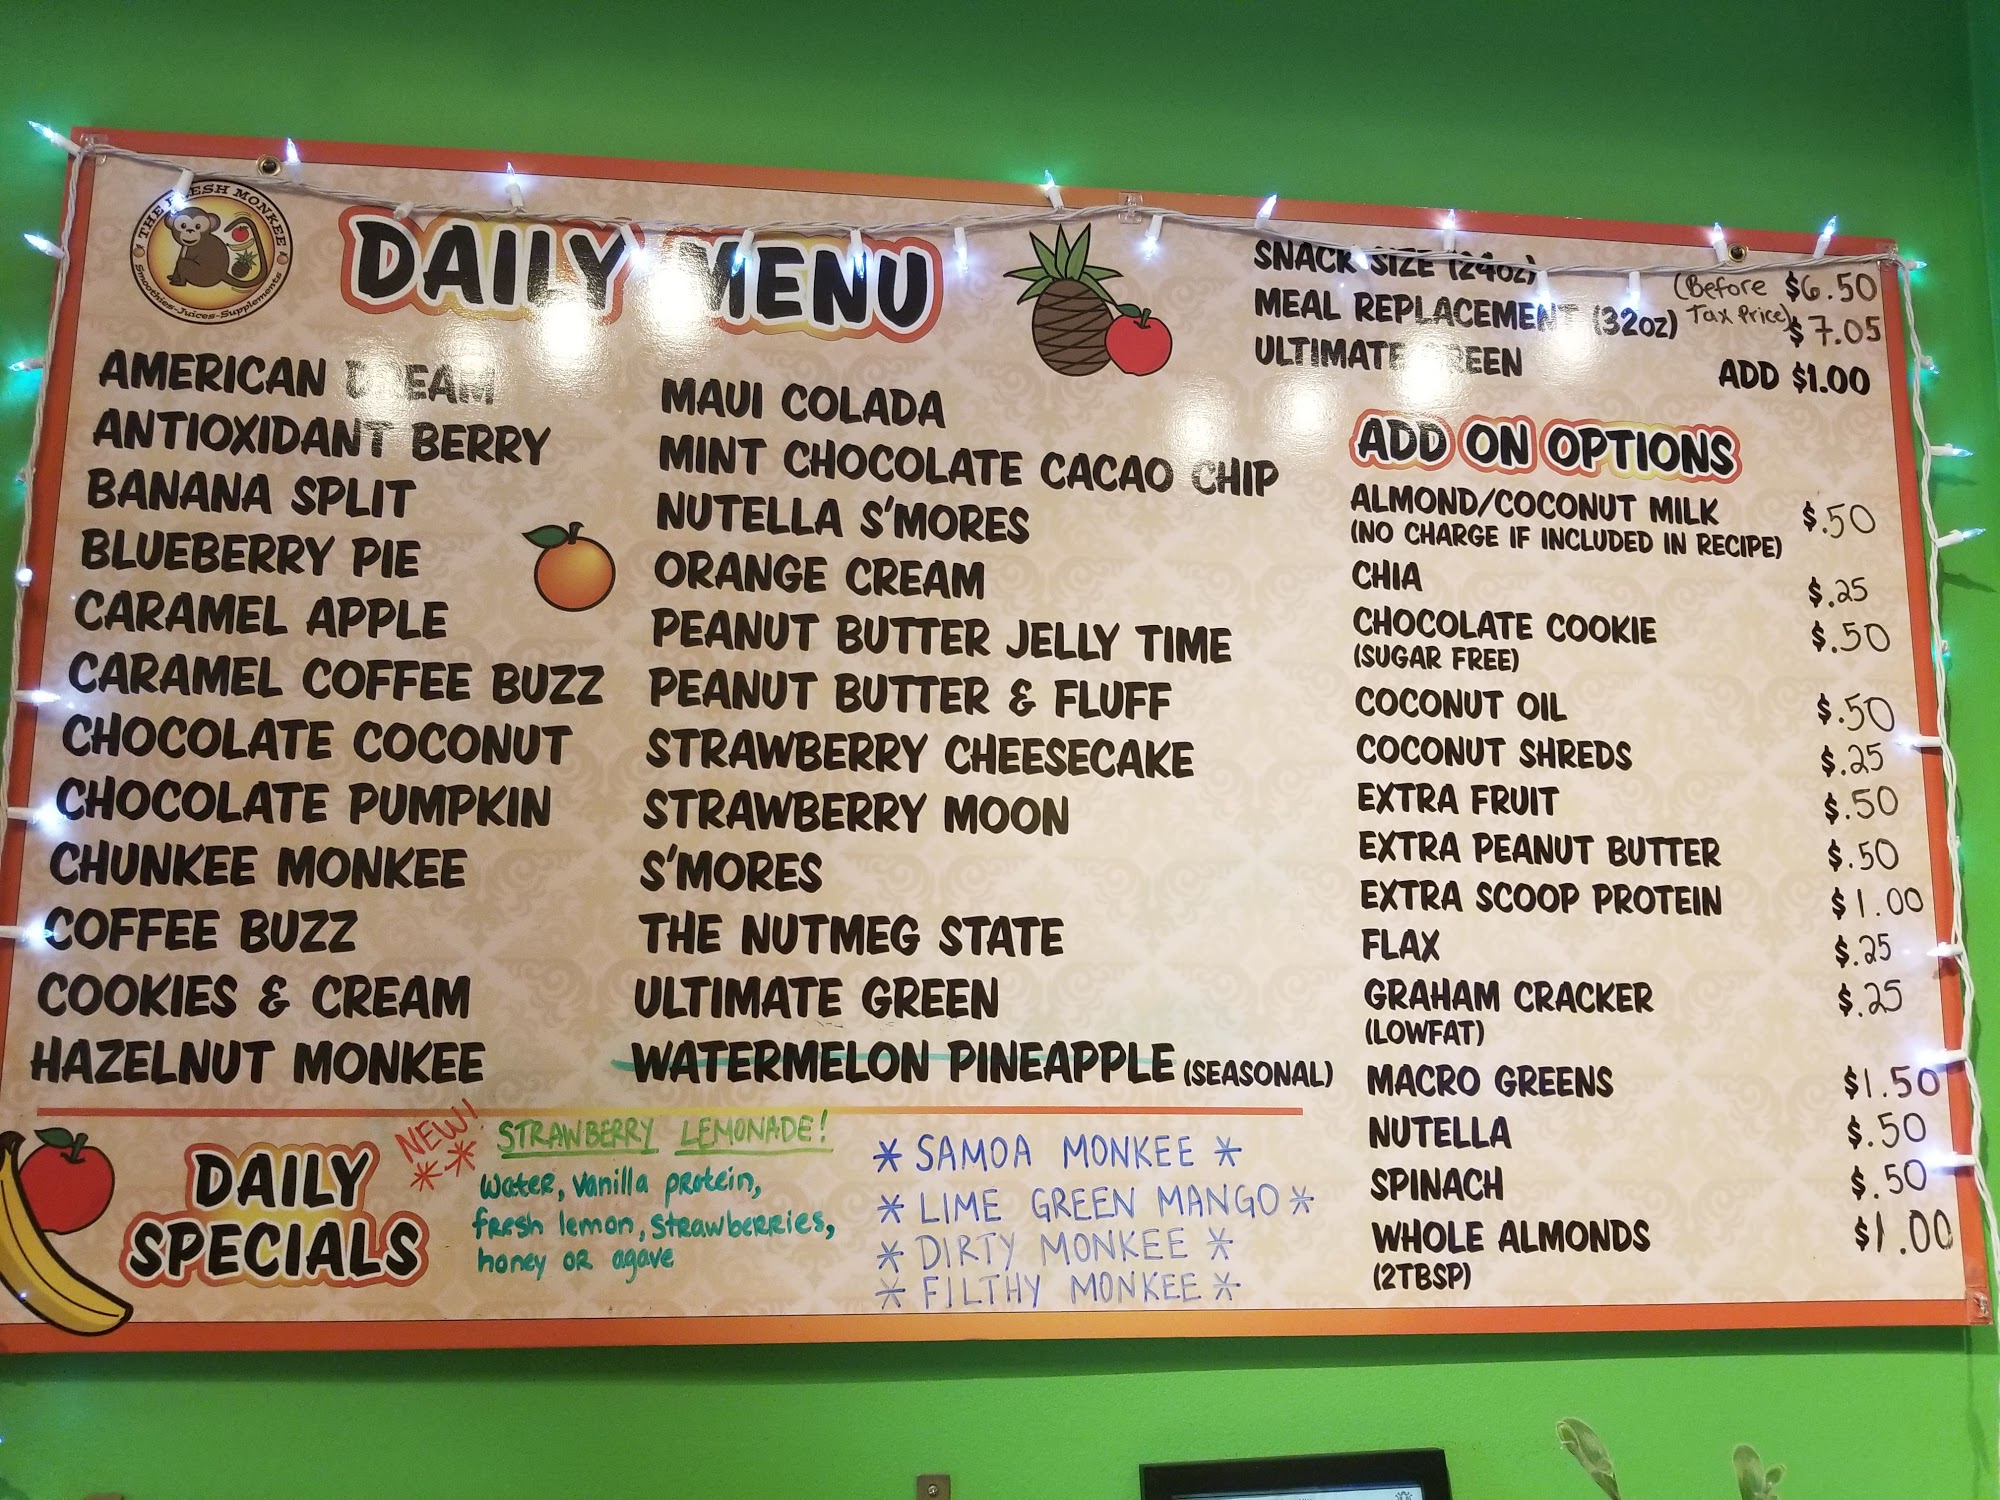 THE FRESH MONKEE
Smoothies-Juices-Supplements
DAILY MENU
AMERICAN DREAM
ANTIOXIDANT BERRY
BANANA SPLIT
BLUEBERRY PIE
CARAMEL APPLE
CARAMEL COFFEE BUZZ
CHOCOLATE COCONUT
CHOCOLATE PUMPKIN
CHUNKEE MONKEE
COFFEE BUZZ
COOKIES & CREAM
HAZELNUT MONKEE
MAUI COLADA
MINT CHOCOLATE CACAO CHIP
NUTELLA S'MORES
ORANGE CREAM
PEANUT BUTTER JELLY TIME
PEANUT BUTTER & FLUFF
STRAWBERRY CHEESECAKE
STRAWBERRY MOON
S'MORES
THE NUTMEG STATE
ULTIMATE GREEN
WATERMELON PINEAPPLE (SEASONAL)
SNACK SIZE (24oz) (Before $6.50
MEAL REPLACEMENT (32oz) Tax Price) $7.05
ULTIMATE GREEN ADD $1.00
ADD ON OPTIONS
ALMOND/COCONUT MILK $.50
(NO CHARGE IF INCLUDED IN RECIPE)
CHIA $.25
CHOCOLATE COOKIE $.50
(SUGAR FREE)
COCONUT OIL $.50
COCONUT SHREDS $.25
EXTRA FRUIT $.50
EXTRA PEANUT BUTTER $.50
EXTRA SCOOP PROTEIN $1.00
FLAX $.25
GRAHAM CRACKER $.25
(LOWFAT)
MACRO GREENS $1.50
NUTELLA $.50
SPINACH $.50
WHOLE ALMONDS $1.00
(2TBSP)
DAILY
SPECIALS
NEW!
STRAWBERRY LEMONADE!
Water, vanilla protein,
fresh lemon, strawberries,
honey or agave
* SAMOA MONKEE *
* LIME GREEN MANGO *
* DIRTY MONKEE *
* FILTHY MONKEE *